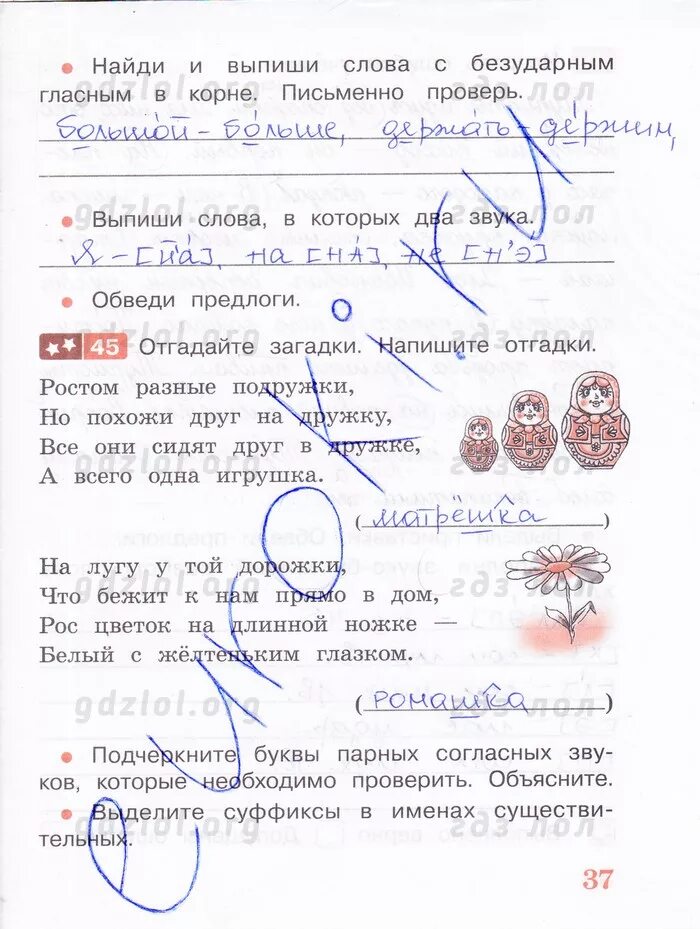 • Найди и выпиши слова с безударным
гласным в корне. Письменно проверь.
большой – больше, держать – держим,
• Выпиши слова, в которых два звука.
Я – [й'а], на [на], не [н'э]
• Обведи предлоги.
45 Отгадайте загадки. Напишите отгадки.
Ростом разные подружки,
Но похожи друг на дружку,
Все они сидят друг в дружке,
А всего одна игрушка.
(матрёшка)
На лугу у той дорожки,
Что бежит к нам прямо в дом,
Рос цветок на длинной ножке —
Белый с жёлтеньким глазком.
(ромашка)
• Подчеркните буквы парных согласных зву-
ков, которые необходимо проверить. Объясните.
• Выделите суффиксы в именах существи-
тельных.
37
gdzlol.org
гдз лол